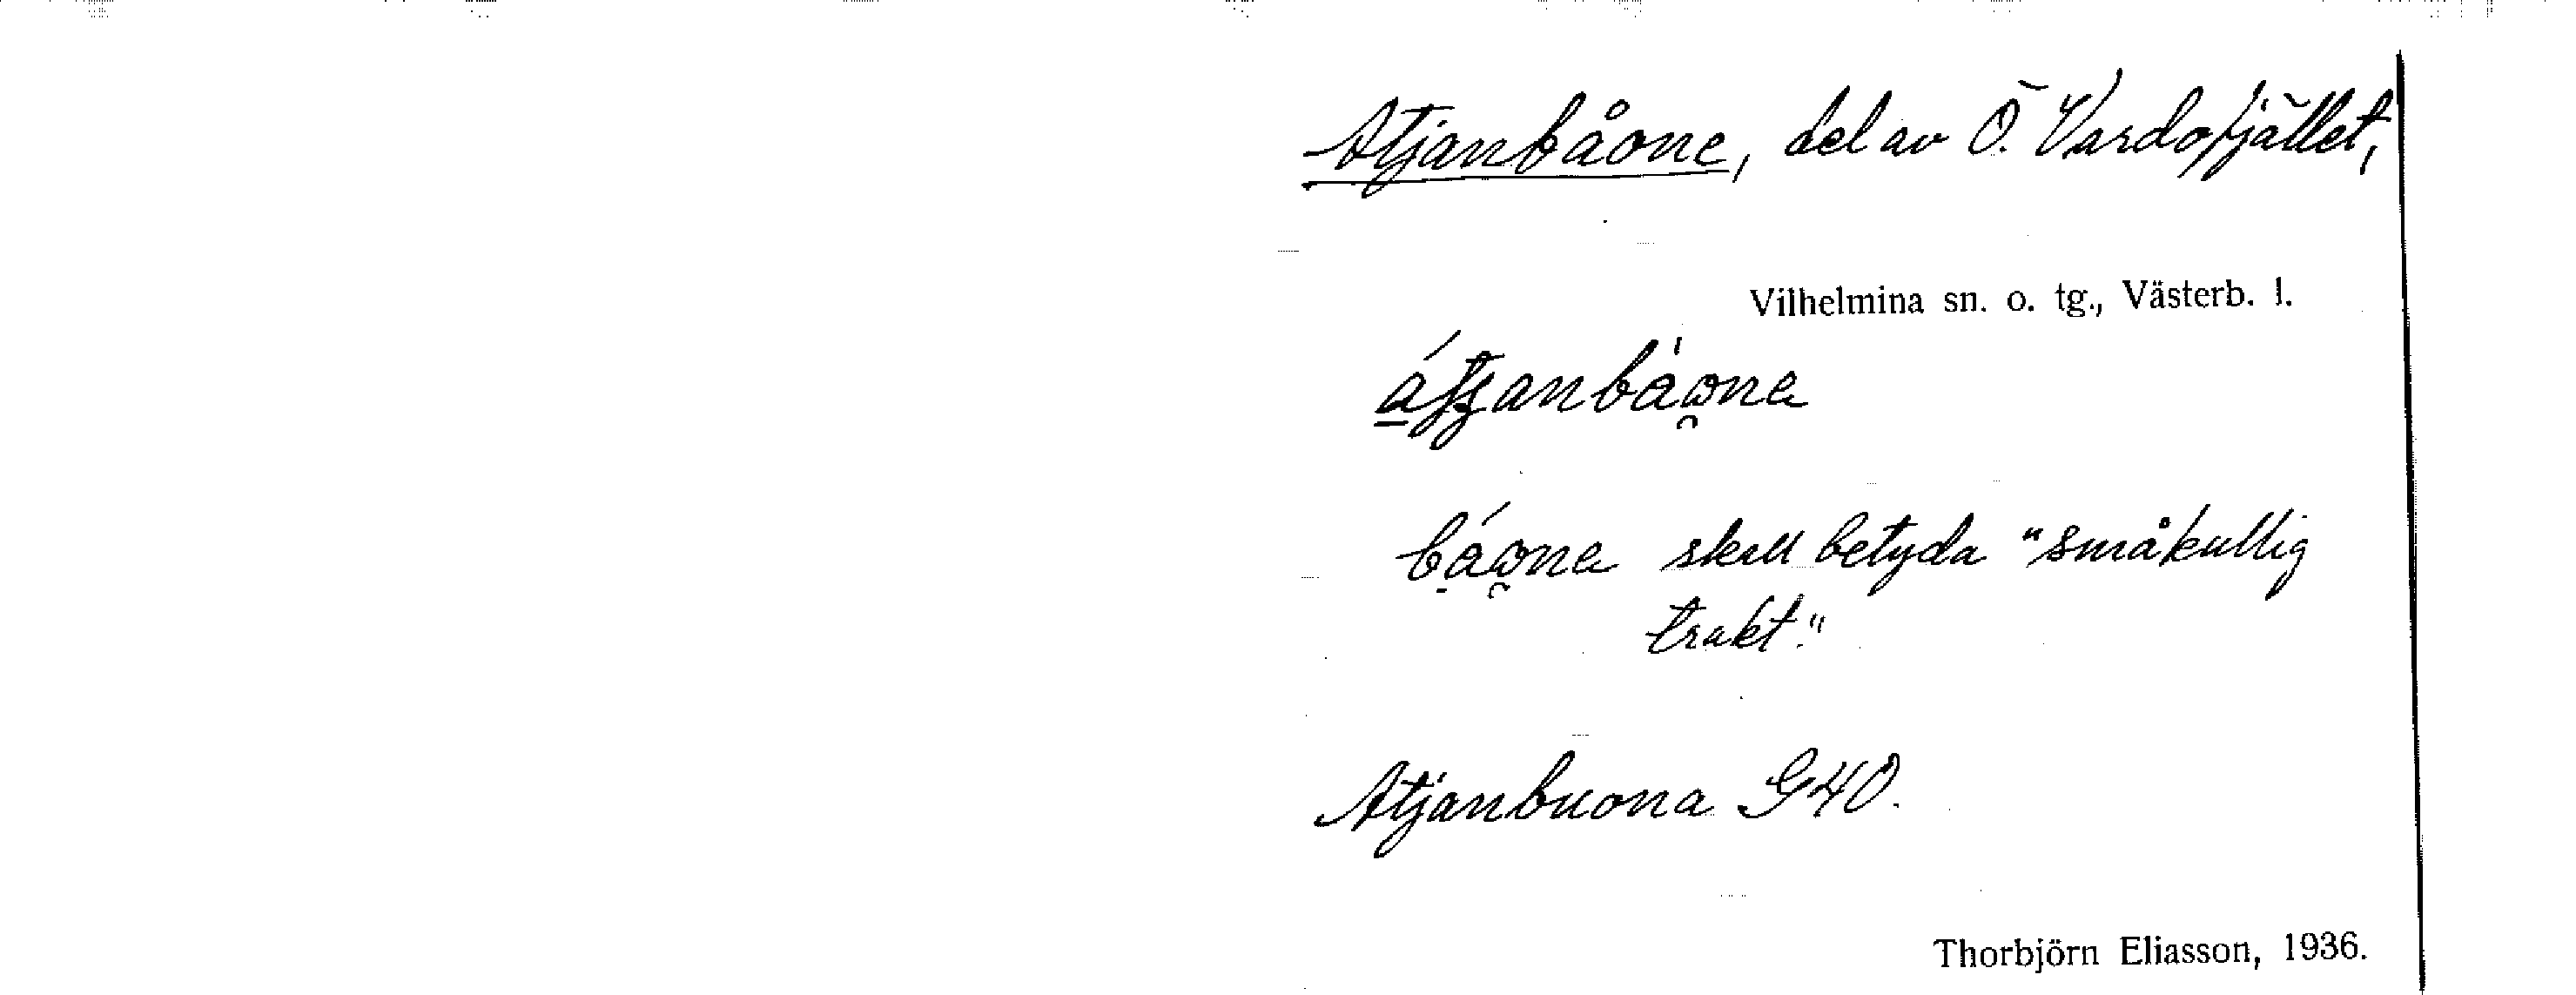 Atjanbåone, del av Ö. Vardofjället,
Vilhelmina sn. o. tg., Västerb. l.
skall betyda "småkullig
trakt."
Atjanbuona G40.
Thorbjörn Eliasson, 1936.